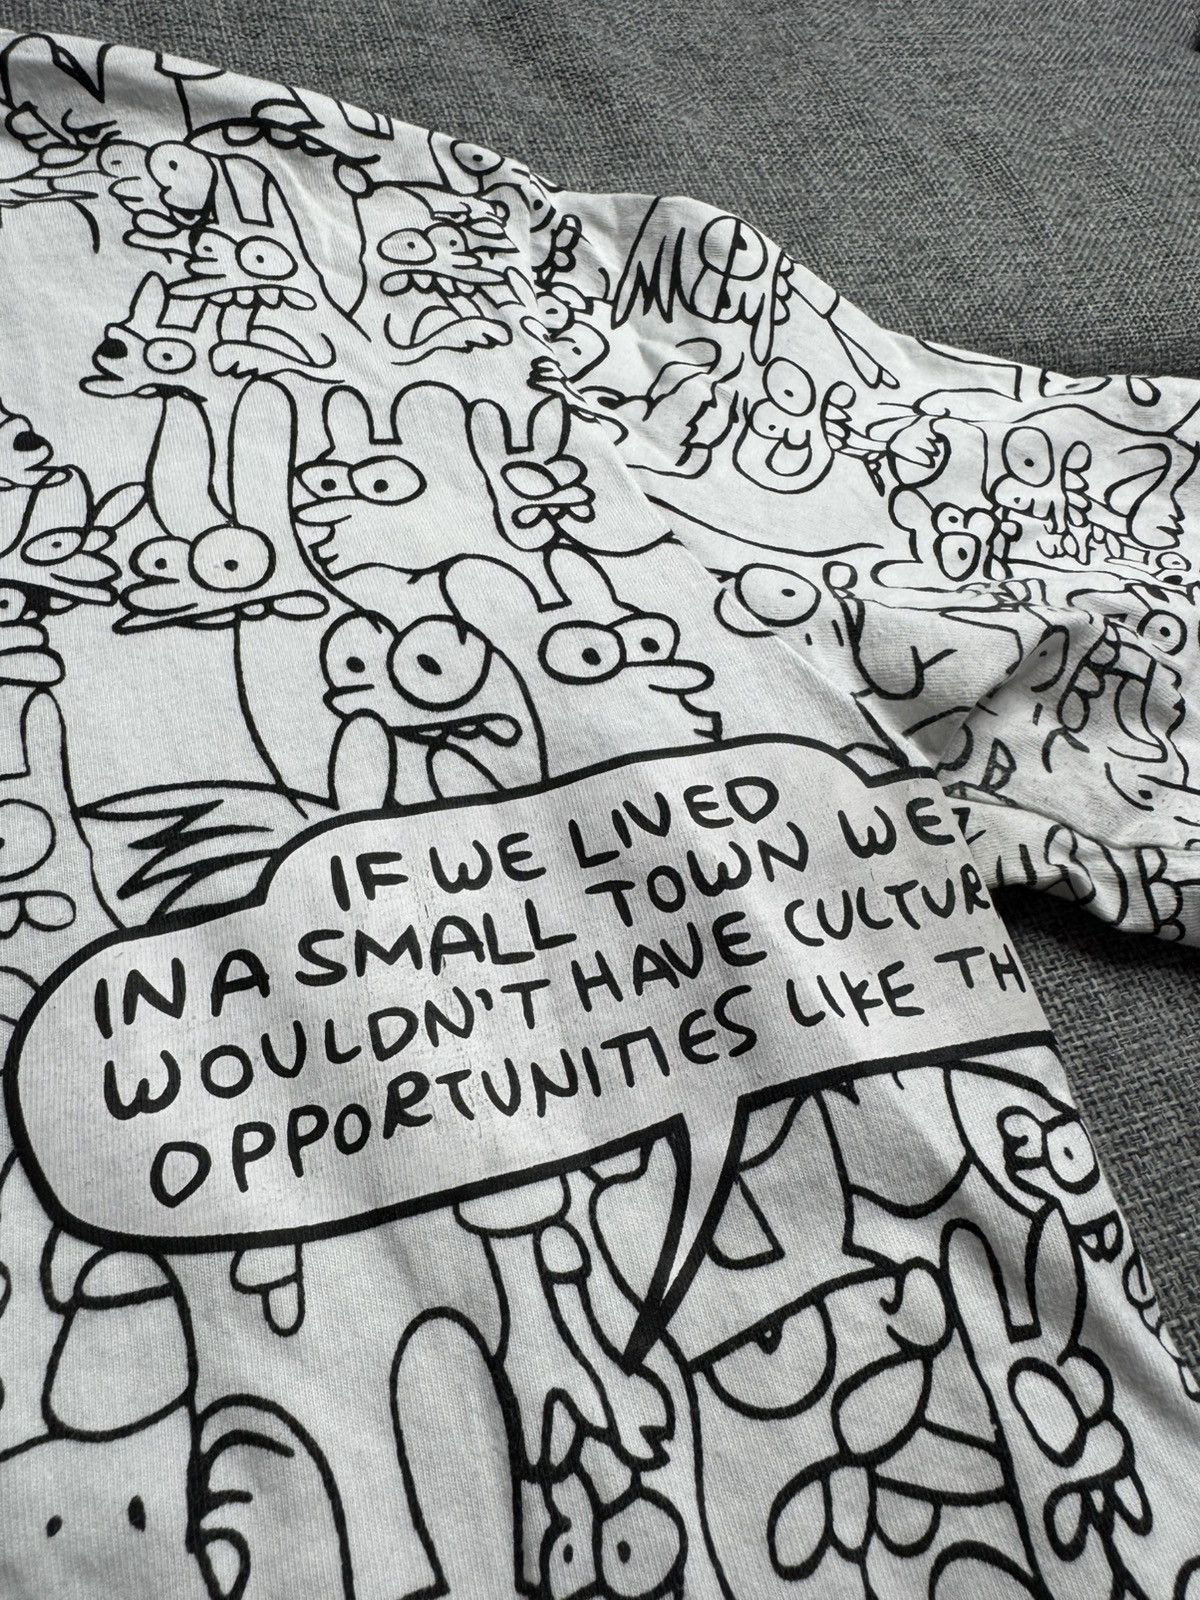 IF WE LIVED
IN A SMALL TOWN WE
WOULDN'T HAVE CULTUR
OPPORTUNITIES LIKE TH